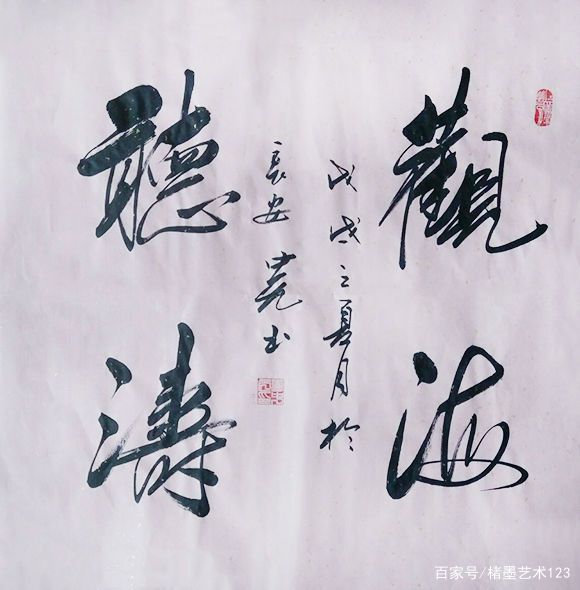 觀海
聽濤
戊戌之夏月於
長安堯书
百家号/楮墨艺术123